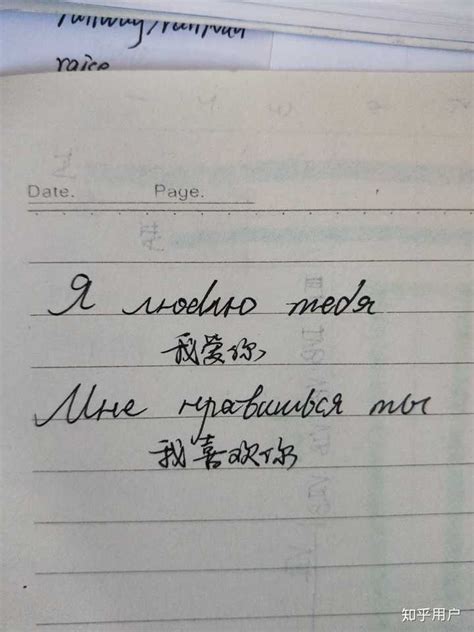 raice
Date. Page.
Я люблю тебя
我爱你
Мне нравишься ты
我喜欢你
知乎用户